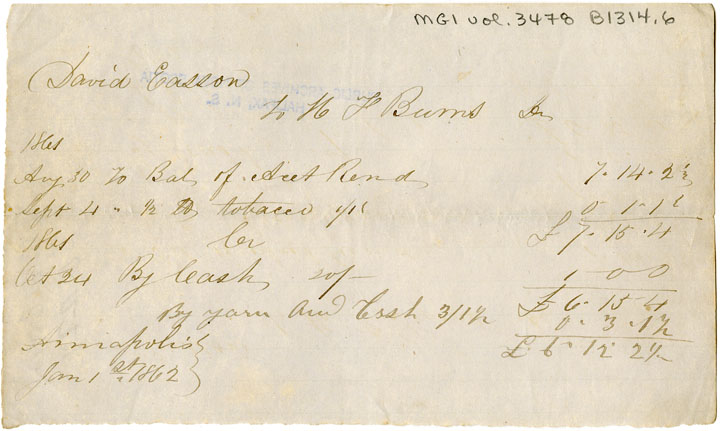 MG1 vol. 3478 B1314.6
David Easson
PUBLIC ARCHIVES
HALIFAX, N. S.
To W F Burns Dr
1861
Aug 30 To Bal of Acct Rend 7.14.2½
Sept 4 " ½ lb tobacco 0.1.1½
1861 Cr £7.15.4
Oct 24 By Cash 20/- 1.0.0
£6.15.4
By yarn and Cash 3/1½ 0.3.1½
Annapolis £6.12.2½
Jan 1st 1862